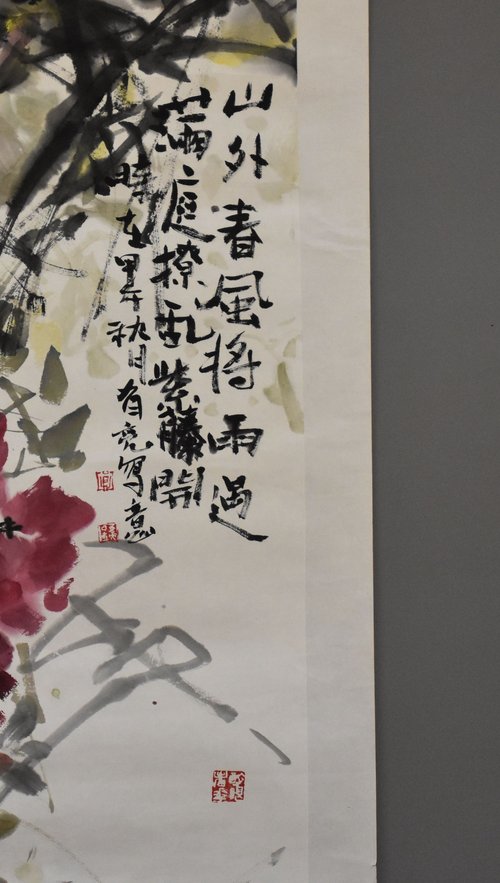 山外春風將雨過
滿庭撩乱紫藤開
時在甲午秋月有亮写意